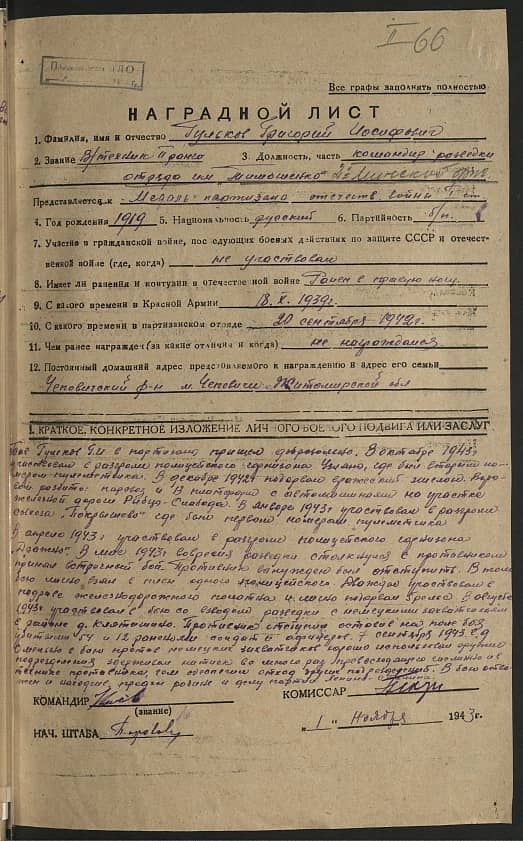 II 66
Все графы заполнять полностью
НАГРАДНОЙ ЛИСТ
1. Фамилия, имя и отчество Гульков Григорий Иосифович
2. Звание В/техник Iго ранга 3. Должность, часть командир разведки
отряда им. Тимошенко 2й Минской бриг.
Представляется к Медаль партизана отечеств. войны I ст
4. Год рождения 1919 5. Национальность русский 6. Партийность б/п.
7. Участие в гражданской войне, последующих боевых действиях по защите СССР и отечест-
венной войне (где, когда) не участвовал
8. Имеет ли ранения и контузии в отечественной войне Ранен в правую ногу.
9. С какого времени в Красной Армии 18.X.1939г.
10. С какого времени в партизанском отряде 20 сентября 1942г.
11. Чем ранее награжден (за какие отличия и когда) не награждался
12. Постоянный домашний адрес представляемого к награждению и адрес его семьи
Чеповичский р-н м. Чеповичи Житомирской обл
I. КРАТКОЕ, КОНКРЕТНОЕ ИЗЛОЖЕНИЕ ЛИЧНОГО БОЕВОГО ПОДВИГА ИЛИ ЗАСЛУГ
Гульков Г.И. в партизаны пришел добровольно. В октябре 194
участвовал в разгроме полицейского гарнизона Узляны, где был вторым но-
мером пулеметчика. В декабре 1942г подорвал вражеский эшелон.
разбито паровоз и 13 платформ с автомашинами на участке
железной дороги Слобода. В январе 1943г участвовал в разгроме
где был первым номером пулеметчика
В апреле 1943г участвовал в разгроме полицейского гарнизона
В мае 1943г во время разведки столкнулся с противником
принял встречный бой. Противник вынужден был отступить. В этом
бою лично взял в плен одного полицейского. Дважды участвовал в
подрыве железнодорожного полотна и лично подорвал рельс. В августе
1943г участвовал в бою со взводом разведки с немецкими захватчиками
в районе д. Противник отступил оставив на поле боя
убитыми 54 и 12 ранеными солдат 6 офицеров. 7 сентября 1943г.
в бою против немецких захватчиков хорошо использовал оружие
подразделения сдерживал натиск во много раз превосходящую силами и
технике противника, чем обеспечил отход других подразделений. В бою отва-
жен и находчив, предан родине и делу партии Ленина
КОМАНДИР
(звание)
КОМИССАР
НАЧ. ШТАБА
„1" ноября 1943г.